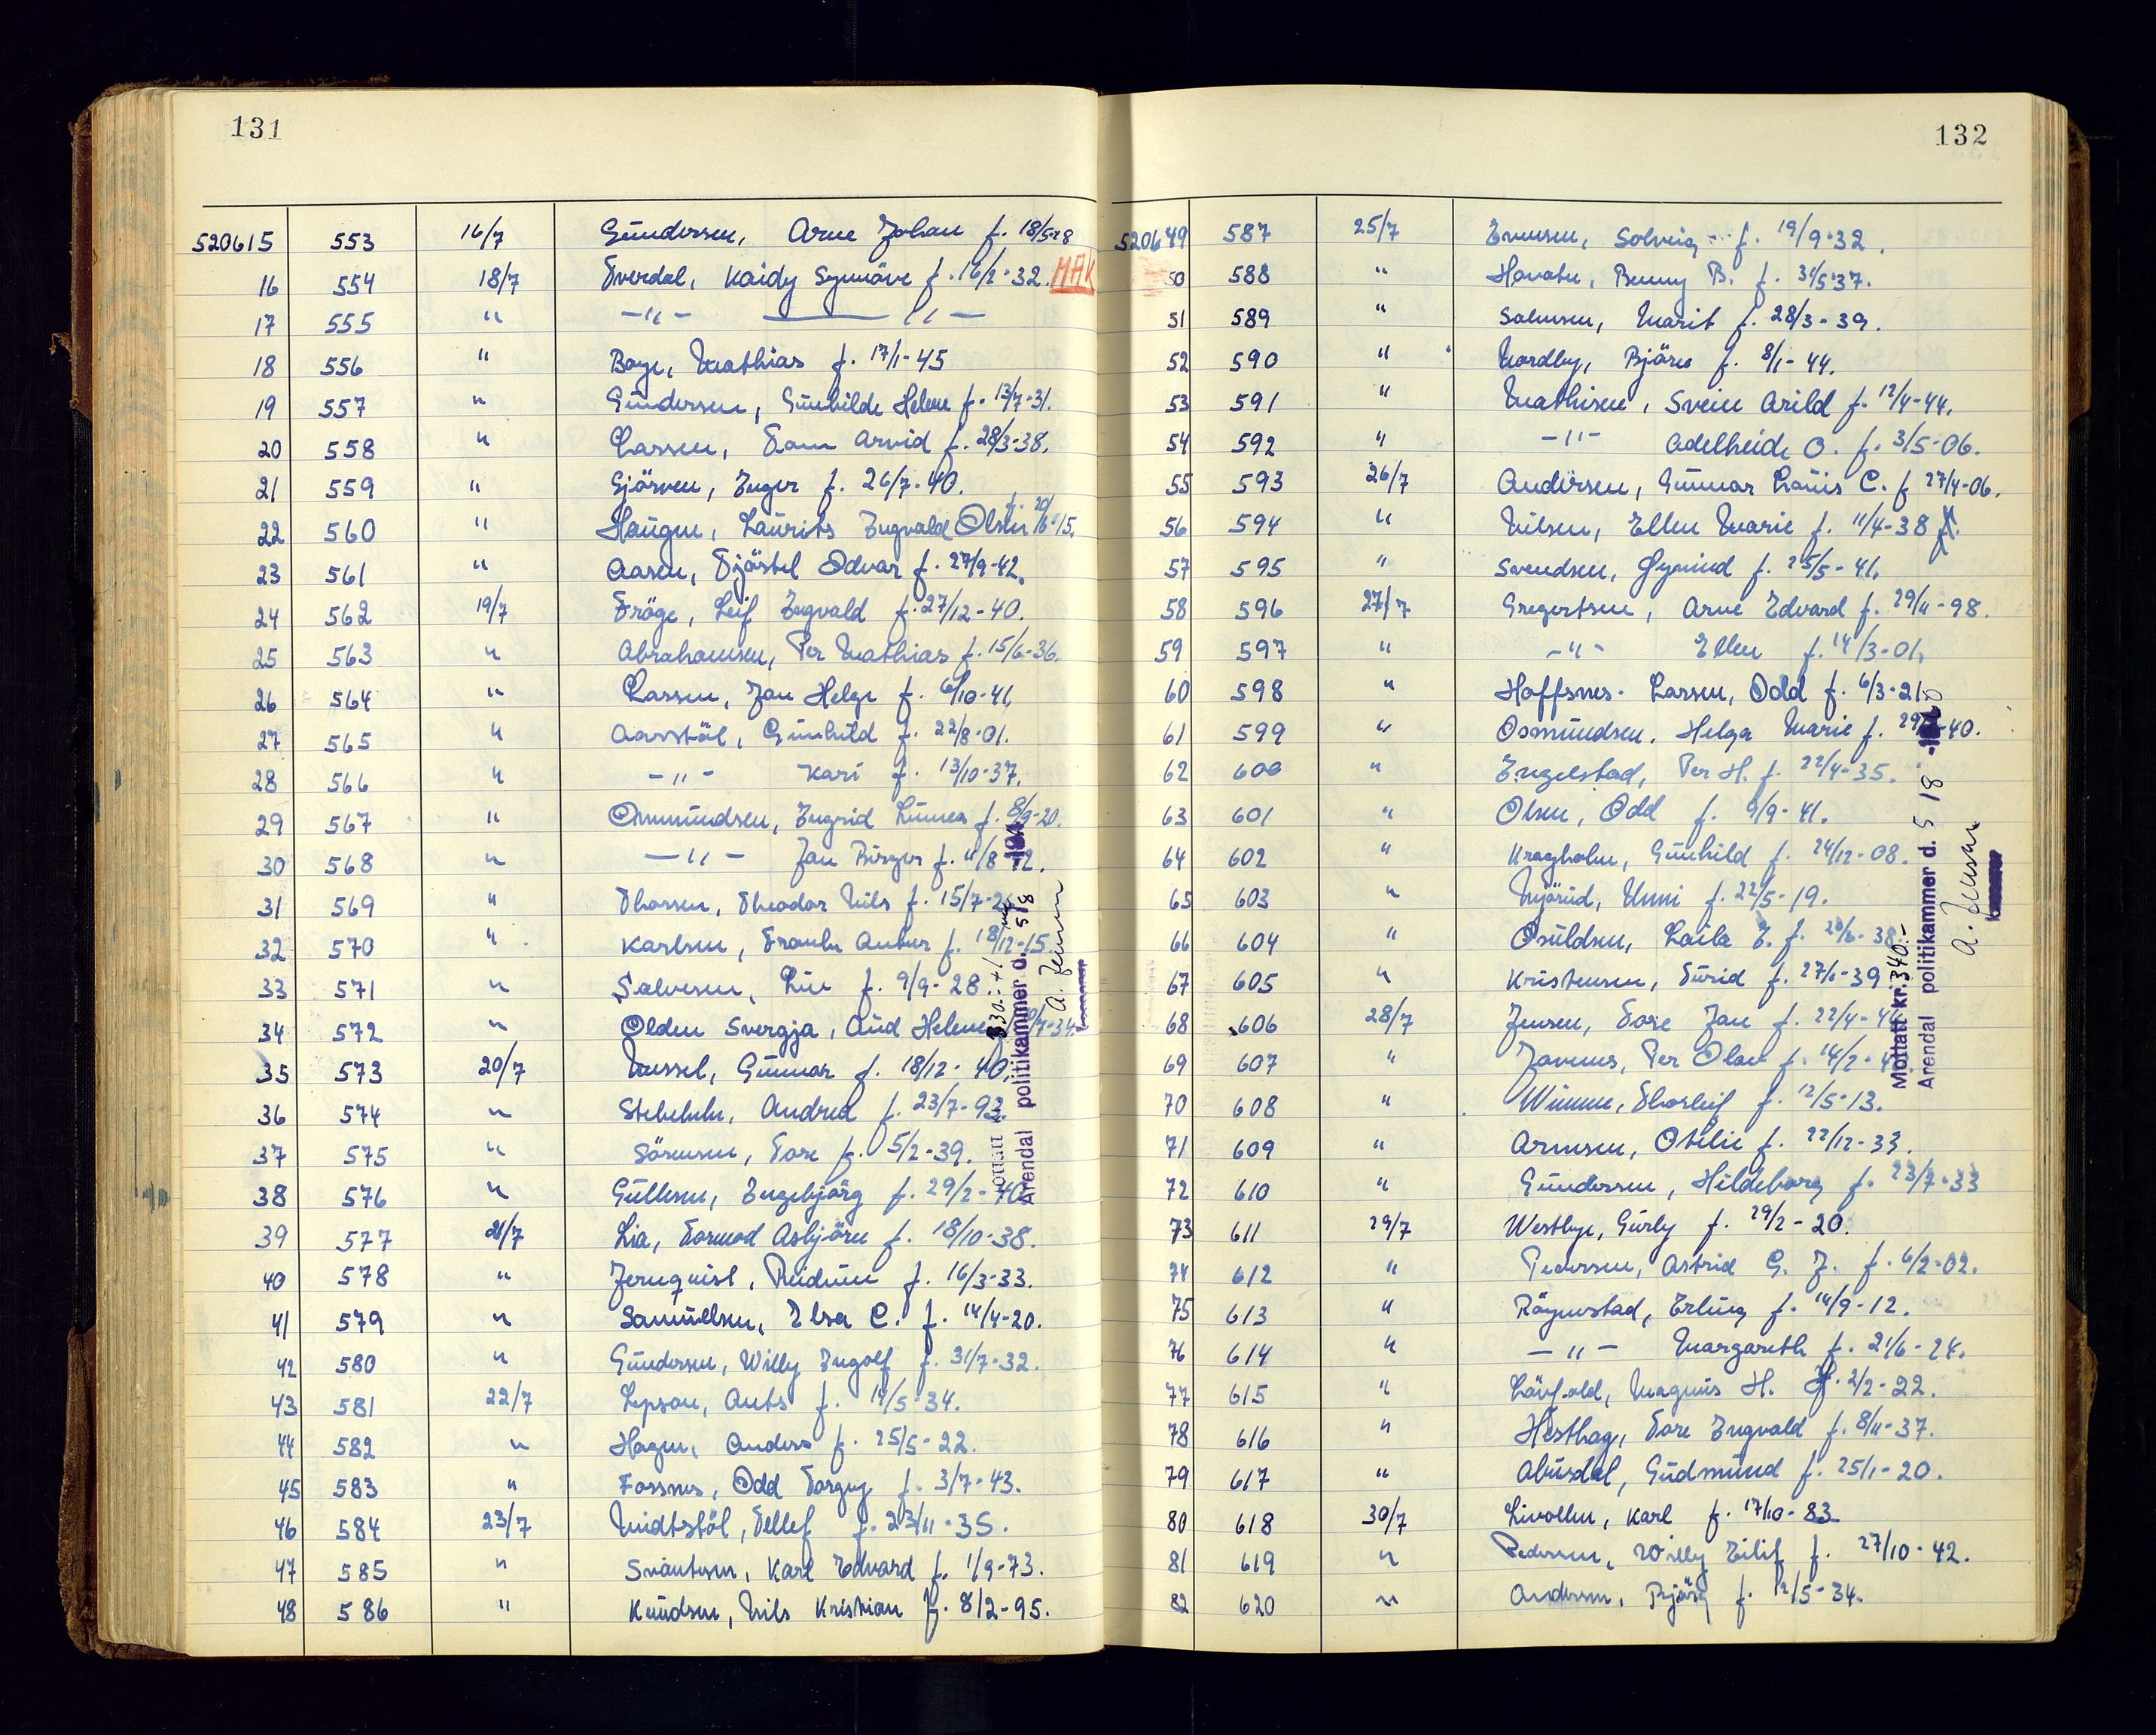 131
520615 553 16/7 Gundersen, Arne Johan f. 18/5-28
16 554 18/7 Tverdal, Kaidy Synnöve f. 16/2-32. MAK
17 555 " -"- -"-
18 556 " Boye, Mathias f. 17/1-45
19 557 " Gundersen, Gunhilde Helene f. 13/7-31.
20 558 " Larsen, Tom Arvid f. 28/3-38.
21 559 " Gjörven, Inger f. 26/7-40.
22 560 " Haugen, Laurits Ingvald Olsen f. 20/6-15.
23 561 " Aasen, Kjöstel Odvar f. 27/9-42.
24 562 19/7 Tröge, Leif Ingvald f. 27/12-40.
25 563 " Abrahamsen, Per Mathias f. 15/6-36.
26 564 " Larsen, Jan Helge f. 6/10-41.
27 565 " Aasstöl, Gunhild f. 22/8-01.
28 566 " -"- Kari f. 13/10-37.
29 567 " Ommundsen, Ingrid Linnea f. 8/9-20.
30 568 " -"- Jan Birger f. 11/8
31 569 " Thorsen, Theodor Nils f. 15/7-
32 570 " Karlsen, Frank Antur f. 18/12-15
33 571 " Salvesen, Liv f. 9/9-28.
34 572 " Olden Svergja, Aud Helene /7-34.
35 573 20/7 Mussel, Gunnar f. 18/12-40.
36 574 " Andrea f. 23/7-93.
37 575 " Sörensen, Tore f. 5/2-39.
38 576 " Gullesen, Ingebjörg f. 29/2-40
39 577 21/7 Lia, Tormod Asbjörn f. 18/10-38.
40 578 " Jernquist, Reidunn f. 16/3-33.
41 579 " Samuelsen, Elsa C. f. 14/4-20.
42 580 " Gundersen, Willy Ingolf f. 31/7-32.
43 581 22/7 Lepsou, Ants f. 14/5-34.
44 582 " Hagen, Anders f. 25/5-22.
45 583 " Fossnes, Odd Torgny f. 3/7-43.
46 584 23/7 Midtstöl, Tellef f. 23/11-35.
47 585 " Svantesen, Karl Edvard f. 1/9-73.
48 586 " Knudsen, Nils Kristian f. 8/2-95.
Arendal politikammer d. 5/8
A. Jensen
132
520649 587 25/7 Evensen, Solveig f. 19/9-32.
50 588 " Benny B. f. 31/5-37.
51 589 " Salvesen, Marit f. 28/3-39.
52 590 " Nordby, Björn f. 8/1-44.
53 591 " Mathisen, Svein Arild f. 12/4-44.
54 592 " -"- Adelheide O. f. 3/5-06.
55 593 26/7 Andersen, Gunnar Louis C. f 27/4-06.
56 594 " Nilsen, Ellen Marie f. 11/4-38
57 595 " Svendsen, Öymund f. 25/5-41.
58 596 27/7 Gregertsen, Arne Edvard f. 29/11-98.
59 597 " -"- Ellen f. 14/3-01.
60 598 " Hoffsnes-Larsen, Odd f. 6/3-21.
61 599 " Osmundsen, Helga Marie f. 29/ -40.
62 600 " Engelstad, Per H. f. 22/4-35.
63 601 " Olsen, Odd f. 9/9-41.
64 602 " Kragholm, Gunhild f. 24/12-08.
65 603 " Mjörud, Unni f. 22/5-19.
66 604 " Osuldsen, Laila E. f. 28/6-38
67 605 " Kristensen, Turid f. 27/6-39
68 606 28/7 Jensen, Tore Jan f. 22/4-4
69 607 " Javenes, Per Olav f. 14/2-4
70 608 " Wimme, Thorleif f. 12/5-13.
71 609 " Arnesen, Otelie f. 22/12-33.
72 610 " Gundersen, Hildeborg f. 23/7-33
73 611 29/7 Westbye, Gurly f. 29/2-20.
74 612 " Pedersen, Astrid G. J. f. 6/2-02.
75 613 " Röynestad, Erling f. 14/9-12.
76 614 " -"- Margareth f. 21/6-24.
77 615 " Lövfold, Magnus H. f. 2/2-22.
78 616 " Hesthag, Tore Ingvald f. 8/11-37.
79 617 " Abusdal, Gudmund f. 25/1-20.
80 618 30/7 Livollen, Karl f. 17/10-83
81 619 " Pedersen, Willy Eilif f. 27/10-42.
82 620 " Andersen, Björg f. 12/5-34.
Mottatt kr. 340.-
Arendal politikammer d. 5/8
A. Jensen